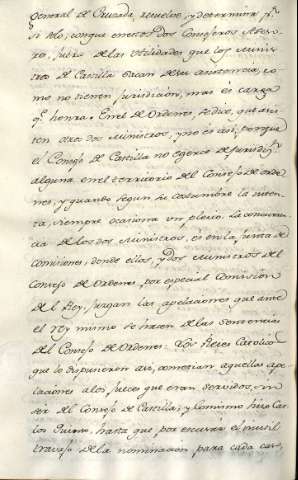 general de Cruzada, resuelve, y determina pr.
si solo; conque enestos dos Consejeros Aseso-
res, fuera de las utilidades que los Minis-
tros de Castilla sacan de su asistencia, co-
mo no tienen jurisdicion, mas es carga
qe. honra. Enel de Ordenes, se dice, que asis-
ten otro dos Ministros, y no es asi, porque
el Consejo de Castilla no egerce Jurisdicn.
alguna enel territorio del Consejo de orde-
nes, y quando segun se costumbre la inten-
ta, siempre ocasiona un pleito. La concurren-
cia de los dos Ministros, es en la junta de
comisiones, donde ellos, y dos Ministros del
Consejo de Ordenes, por especial Comision
de el Rey, juzgan las apelaciones que ante
el rey mismo se hacen de las sentencias
del Consejo de Ordenes. Los Reies Catolicos
que lo dispusieron asi, cometian aquellas ape-
laciones a los jueces que eran servidos, sin
ser del Consejo de Castilla; y lo mismo hizo Car-
los Quinto, hasta que por escusar el inutil
travajo de la nominacion para cada caso,